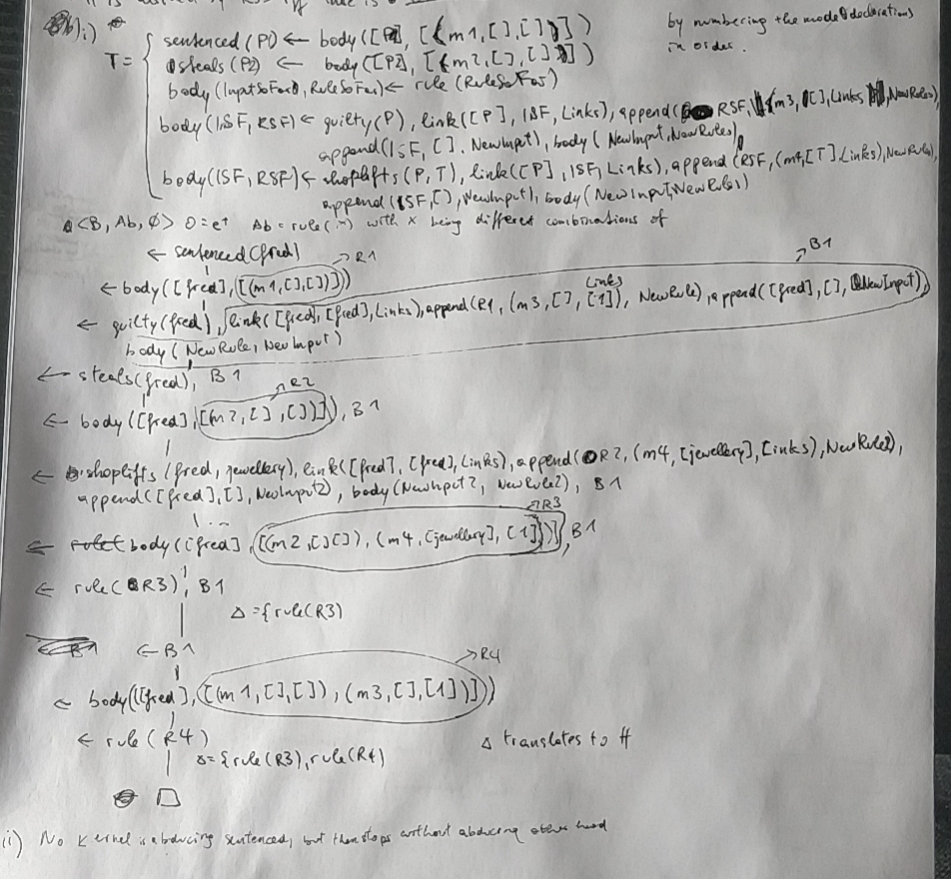 b) i)
T = { sentenced(P1) ← body([P1], [(m1, [], [])])
steals(P2) ← body([P2], [(m2, [], [])])
body(InputSoFar, RuleSoFar) ← rule(RuleSoFar)
body(ISF, RSF) ← guilty(P), link([P], ISF, Links), append(RSF, (m3, [], Links), NewRules)
append(ISF, [], NewInput), body(NewInput, NewRules)
body(ISF, RSF) ← shoplifts(P, T), link([P], ISF, Links), append(RSF, (m4, [T], Links), NewRule),
append(ISF, [], NewInput), body(NewInput, NewRules)
by numbering the mode declarations
in order.
<B, Ab, ∅> O = e+ Ab = rule(x) with x being different combinations of
← sentenced(fred)
→ R1
← body([fred], [(m1, [], [])])
→ B1
← guilty(fred), link([fred], [fred], Links), append(R1, (m3, [], [1]), NewRule), append([fred], [], NewInput),
Links
body(NewRule, NewInput)
← steals(fred), B1
→ R2
← body([fred], [(m2, [], [])]), B1
← shoplifts(fred, jewellery), link([fred], [fred], Links), append(R2, (m4, [jewellery], [Links), NewRule2),
append([fred], [], NewInput2), body(NewInput2, NewRule2), B1
...
→ R3
← body([fred], [(m2, [] []), (m4, [jewellery], [1])]), B1
← rule(R3), B1
Δ = {rule(R3)
← B1
→ R4
← body([fred], [(m1, [], []), (m3, [], [1])])
← rule(R4)
Δ = {rule(R3), rule(R4)
Δ translates to H
□
ii) No Kernel is abducing sentenced, but then stops without abducing other head